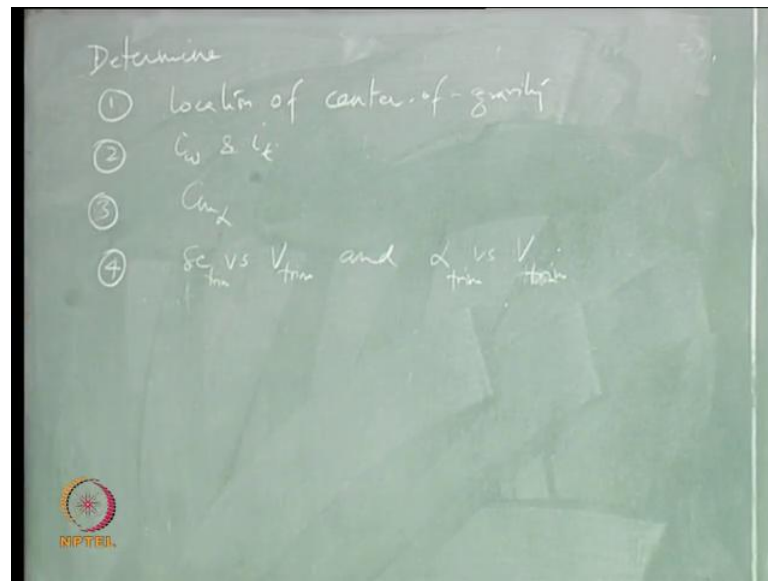 Determine
① location of center-of-gravity
② i_w & i_t
③ C_mα
④ δe_trim vs V_trim and α_trim vs V_trim
NPTEL